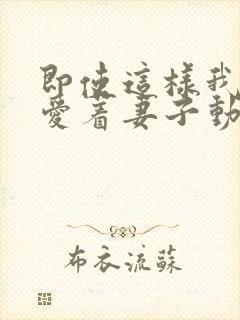 即使這樣我
愛着妻子動
布衣流蘇